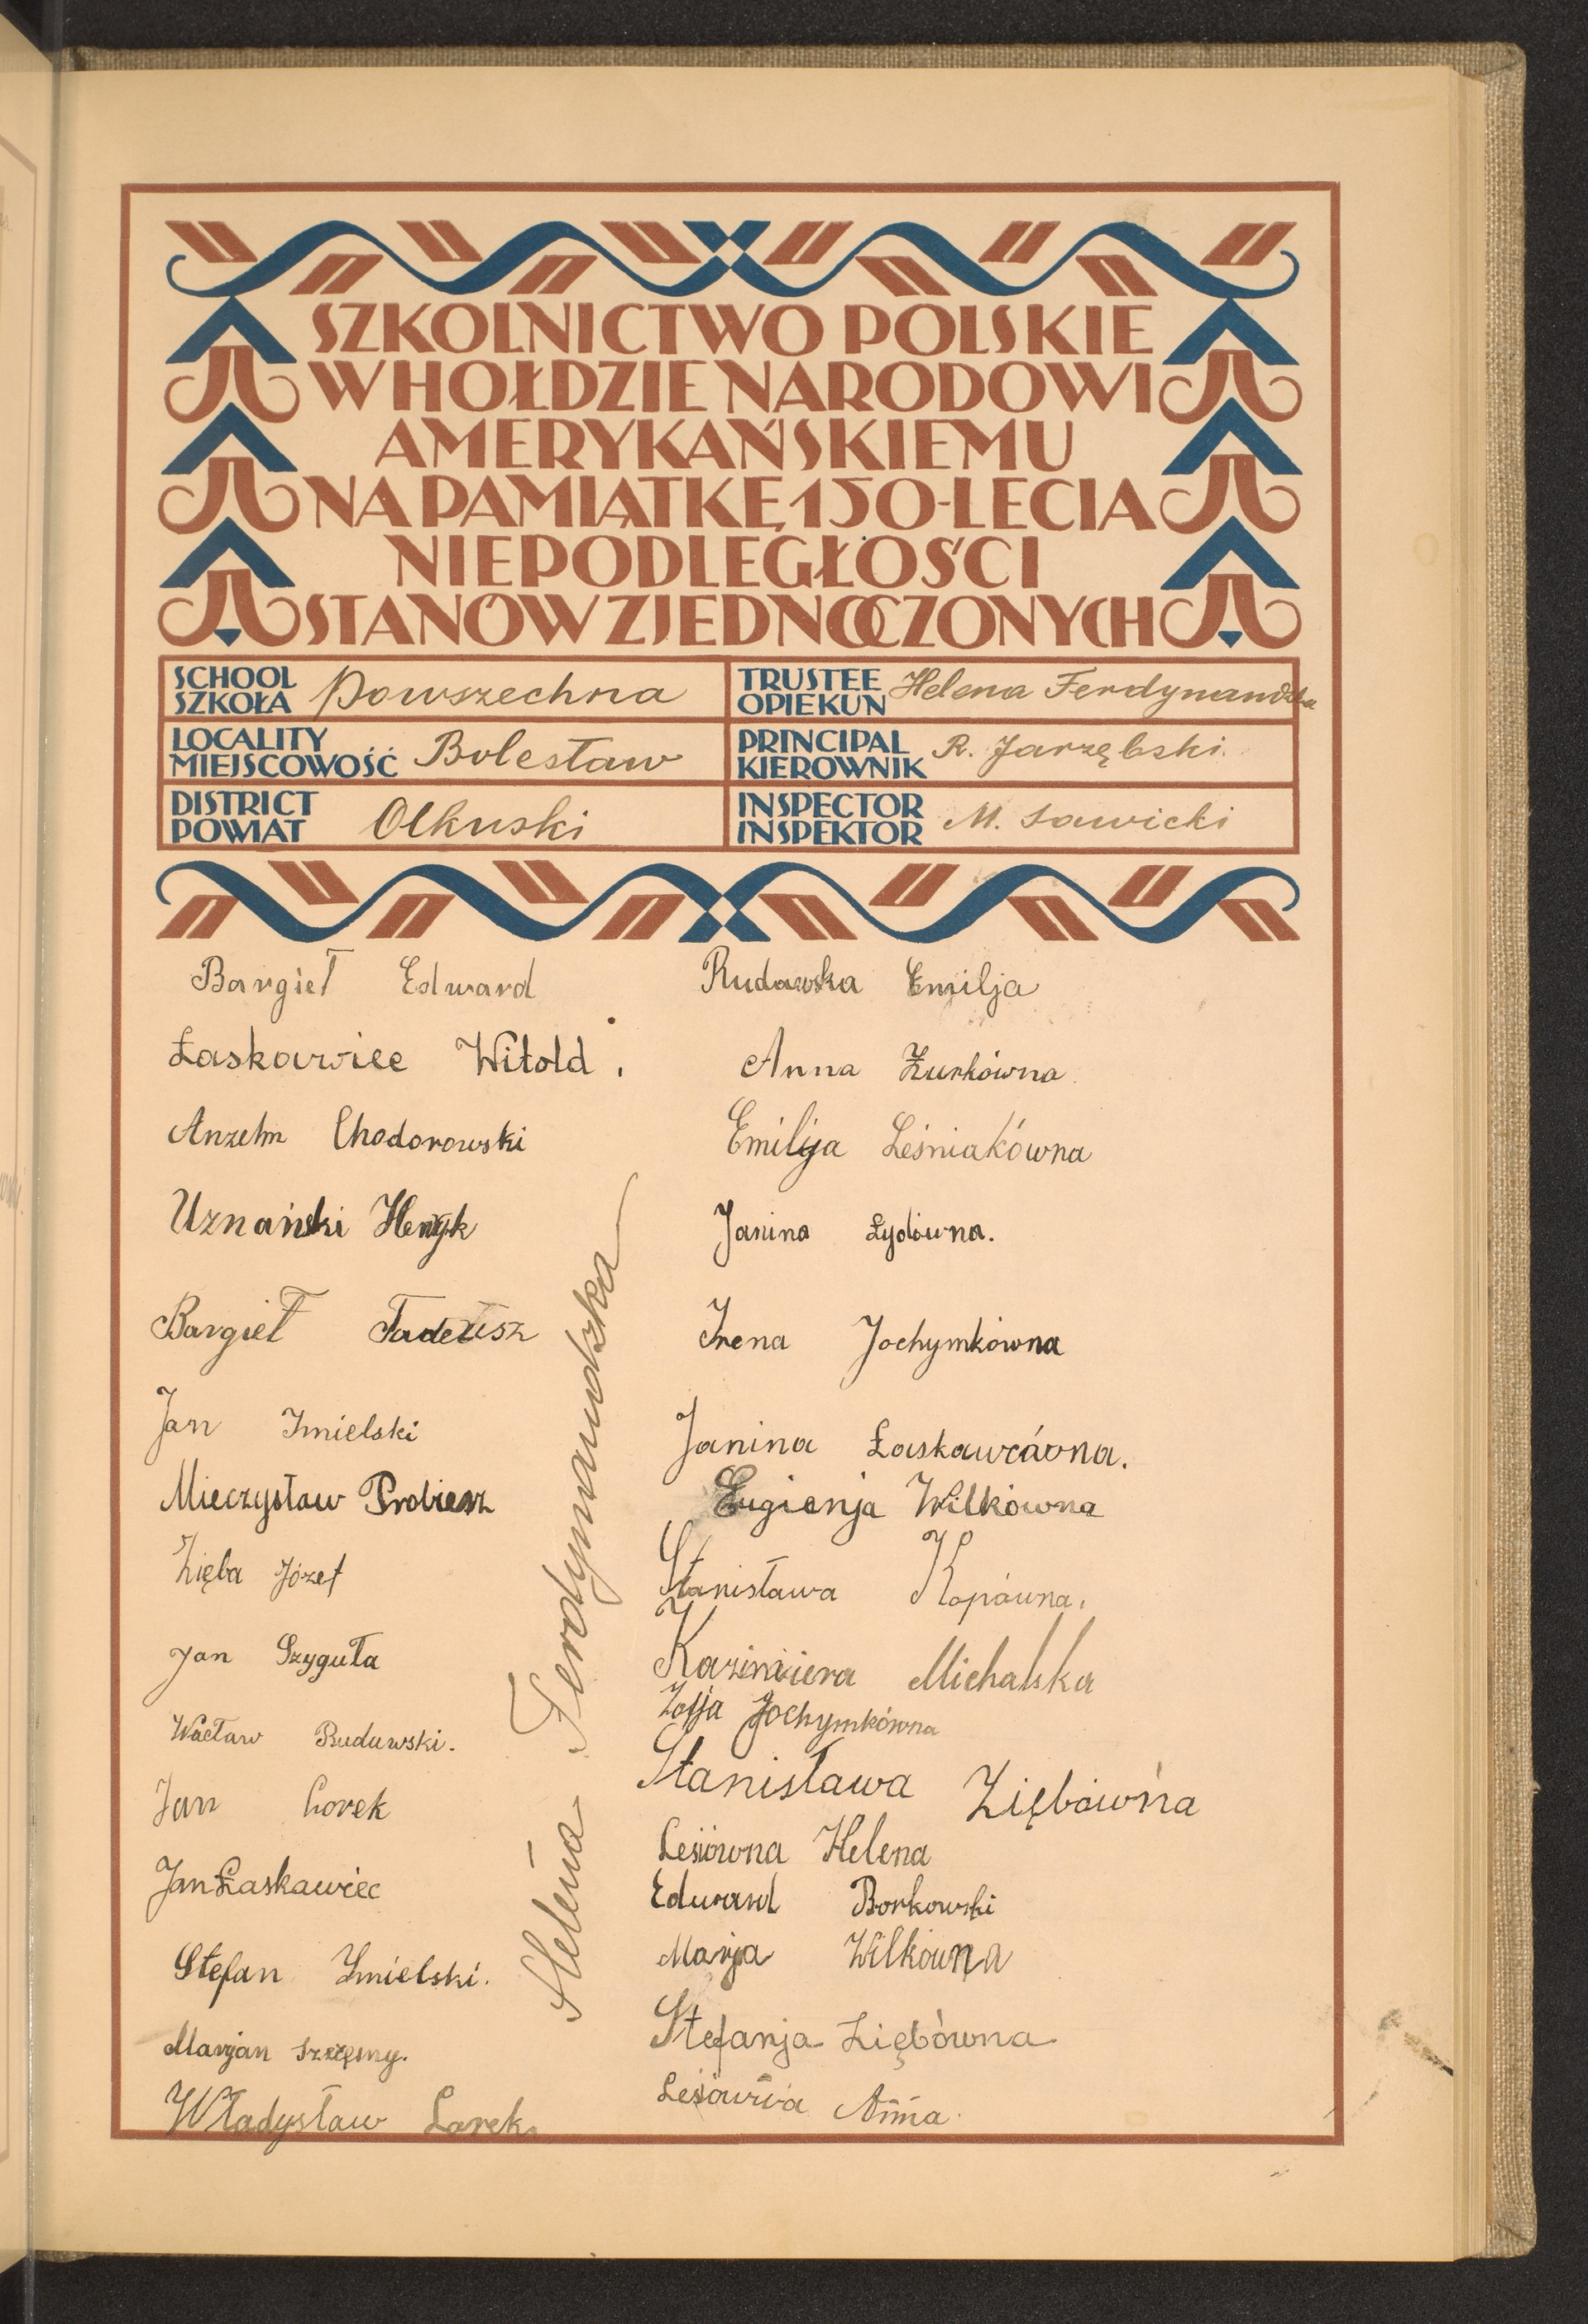 SZKOLNICTWO POLSKIE
W HOŁDZIE NARODOWI
AMERYKAŃSKIEMU
NA PAMIĄTKĘ 150-LECIA
NIEPODLEGŁOŚCI
STANÓW ZJEDNOCZONYCH
SCHOOL
SZKOŁA Powszechna
TRUSTEE
OPIEKUN Helena Ferdynandzka
LOCALITY
MIEJSCOWOŚĆ Bolesław
PRINCIPAL
KIEROWNIK R. Jarzębski
DISTRICT
POWIAT Olkuski
INSPECTOR
INSPEKTOR M. Sawicki
Bargieł Edward
Łaskawiec Witold.
Anzelm Chodorowski
Uznański Henryk
Bargieł Tadeusz
Jan Imielski
Mieczysław Probierz
Zięba Józef
Jan Szyguła
Wacław Rudawski.
Jan Lorek
Jan Łaskawiec
Stefan Imielski.
Marjan Szczęsny.
Władysław Lorek.
Helena Ferdynandzka
Rudawska Emilja
Anna Żurkówna
Emilija Leśniakówna
Janina Łydówna.
Irena Jochymkówna
Janina Łaskawcówna.
Eugienja Wilkówna
Stanisława Kopówna.
Kazimiera Michalska
Zofja Jochymkówna
Stanisława Ziębówna
Lesiówna Helena
Edward Borkowski
Marja Wilkówna
Stefanja Ziębówna
Lesiówna Anna.